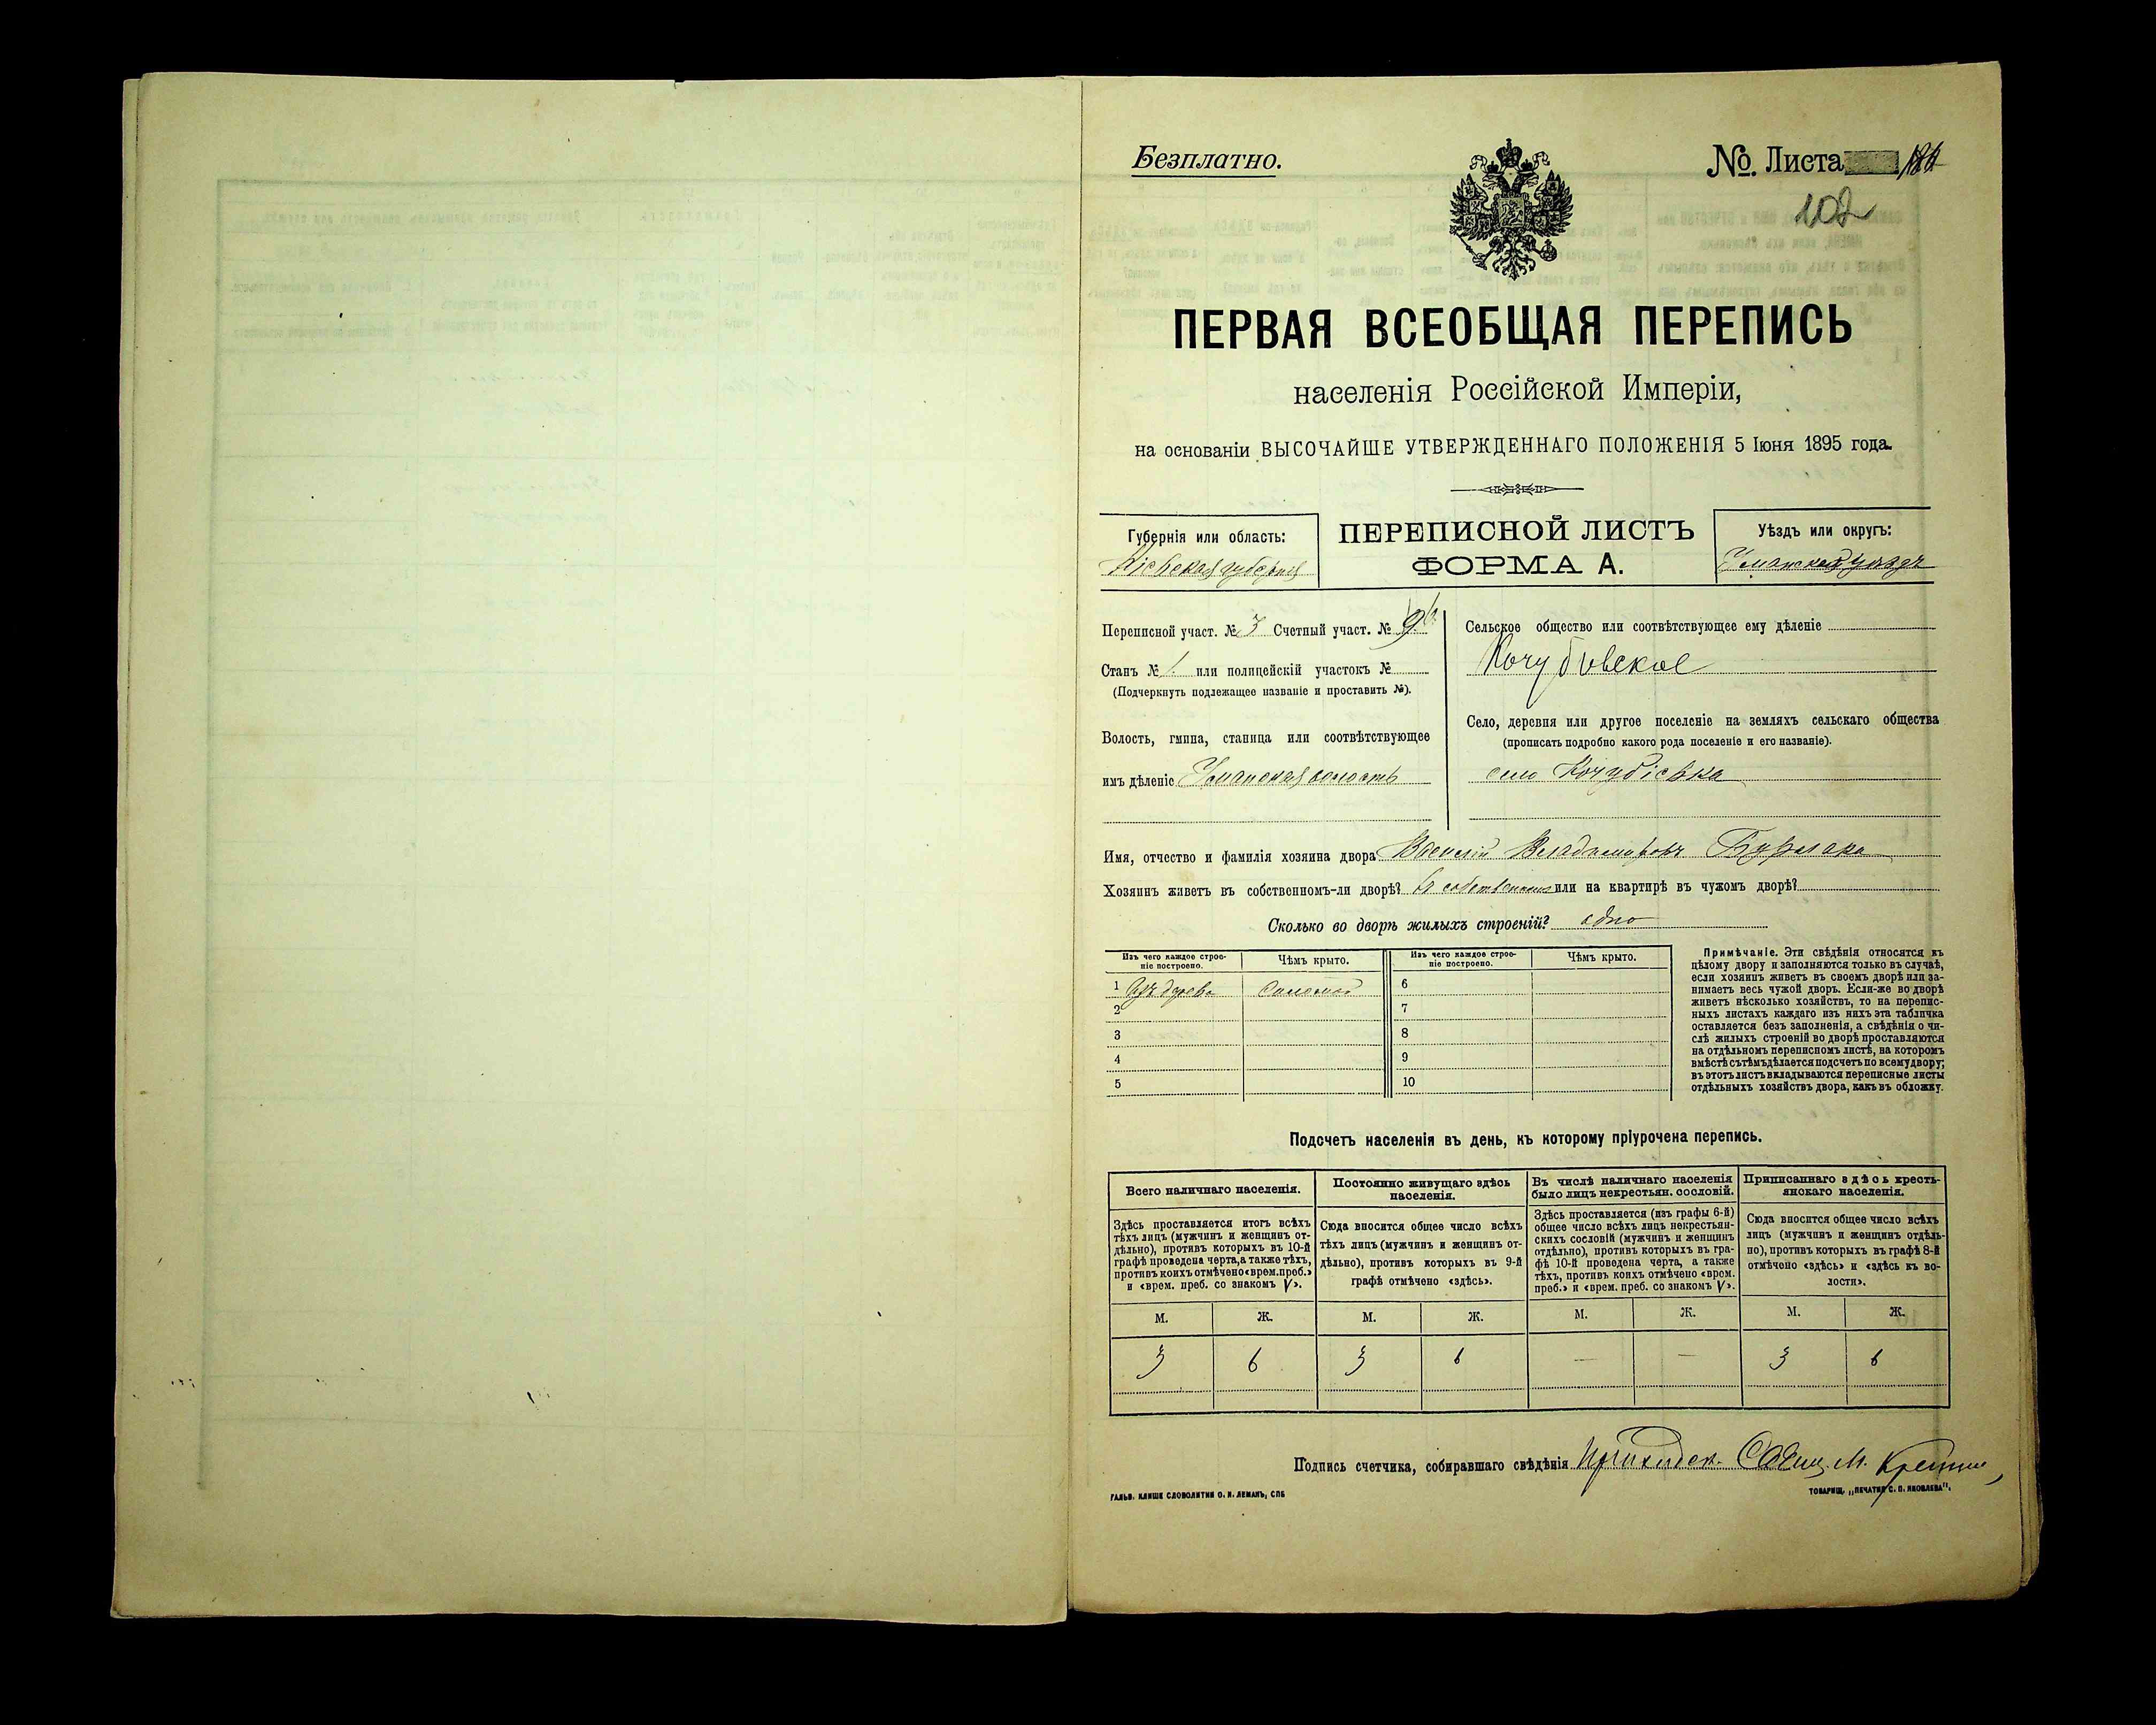 Безплатно.
№. Листа
102
ПЕРВАЯ ВСЕОБЩАЯ ПЕРЕПИСЬ
населенія Россійской Имперіи,
на основаніи ВЫСОЧАЙШЕ УТВЕРЖДЕННАГО ПОЛОЖЕНІЯ 5 Іюня 1895 года.
Губернія или область:
Кіевская губернія
ПЕРЕПИСНОЙ ЛИСТЪ
ФОРМА А.
Уѣздъ или округъ:
Уманскій уѣздъ
Переписной участ. № 3 Счетный участ. № 9
Станъ № 1 или полицейскій участокъ №
(Подчеркнуть подлежащее названіе и проставить №).
Волость, гмина, станица или соотвѣтствующее
имъ дѣленіе Уманская волость
Сельское общество или соотвѣтствующее ему дѣленіе
Кочубіевское
Село, деревня или другое поселеніе на земляхъ сельскаго общества
(прописать подробно какого рода поселеніе и его названіе).
село Кочубіевка
Имя, отчество и фамилія хозяина двора Владиміровъ Бурлака
Хозяинъ живетъ въ собственномъ-ли дворѣ? въ собственномъ или на квартирѣ въ чужомъ дворѣ?
Сколько во дворѣ жилыхъ строеній? одно
Изъ чего каждое строе-
ніе построено.
Чѣмъ крыто.
Изъ чего каждое строе-
ніе построено.
Чѣмъ крыто.
1 Изъ дерева Соломой
2
3
4
5
6
7
8
9
10
Примѣчаніе. Эти свѣдѣнія относятся къ
цѣлому двору и заполняются только въ случаѣ,
если хозяинъ живетъ въ своемъ дворѣ или за-
нимаетъ весь чужой дворъ. Если-же во дворѣ
живетъ нѣсколько хозяйствъ, то на перепис-
ныхъ листахъ каждаго изъ нихъ эта табличка
оставляется безъ заполненія, а свѣдѣнія о чи-
слѣ жилыхъ строеній во дворѣ проставляются
на отдѣльномъ переписномъ листѣ, на которомъ
вмѣстѣ съ тѣмъ дѣлается подсчетъ по всему двору;
въ этотъ листъ вкладываются переписные листы
отдѣльныхъ хозяйствъ двора, какъ въ обложку.
Подсчетъ населенія въ день, къ которому пріурочена перепись.
Всего наличнаго населенія.
Здѣсь проставляется итогъ всѣхъ
тѣхъ лицъ (мужчинъ и женщинъ от-
дѣльно), противъ которыхъ въ 10-й
графѣ проведена черта, а также тѣхъ,
противъ коихъ отмѣчено «врем. преб.»
и «врем. преб. со знакомъ V».
Постоянно живущаго здѣсь
населенія.
Сюда вносится общее число всѣхъ
тѣхъ лицъ (мужчинъ и женщинъ от-
дѣльно), противъ которыхъ въ 9-й
графѣ отмѣчено «здѣсь».
Въ числѣ наличнаго населенія
было лицъ некрестьян. сословій.
Здѣсь проставляется (изъ графы 6-й)
общее число всѣхъ лицъ некрестьян-
скихъ сословій (мужчинъ и женщинъ
отдѣльно), противъ которыхъ въ гра-
фѣ 10-й проведена черта, а также
тѣхъ, противъ коихъ отмѣчено «врем.
преб.» и «врем. преб. со знакомъ V».
Приписаннаго здѣсь кресть-
янскаго населенія.
Сюда вносится общее число всѣхъ
лицъ (мужчинъ и женщинъ отдѣль-
но), противъ которыхъ въ графѣ 8-й
отмѣчено «здѣсь» и «здѣсь къ во-
лости».
М. Ж. М. Ж. М. Ж. М. Ж.
3 6 3 6 — — 3 6
Подпись счетчика, собиравшаго свѣдѣнія
ГАЛЬВ. КЛИШЕ СЛОВОЛИТНИ О. И. ЛЕМАНЪ, СПБ
ТОВАРИЩ. „ПЕЧАТНЯ С. П. ЯКОВЛЕВА".